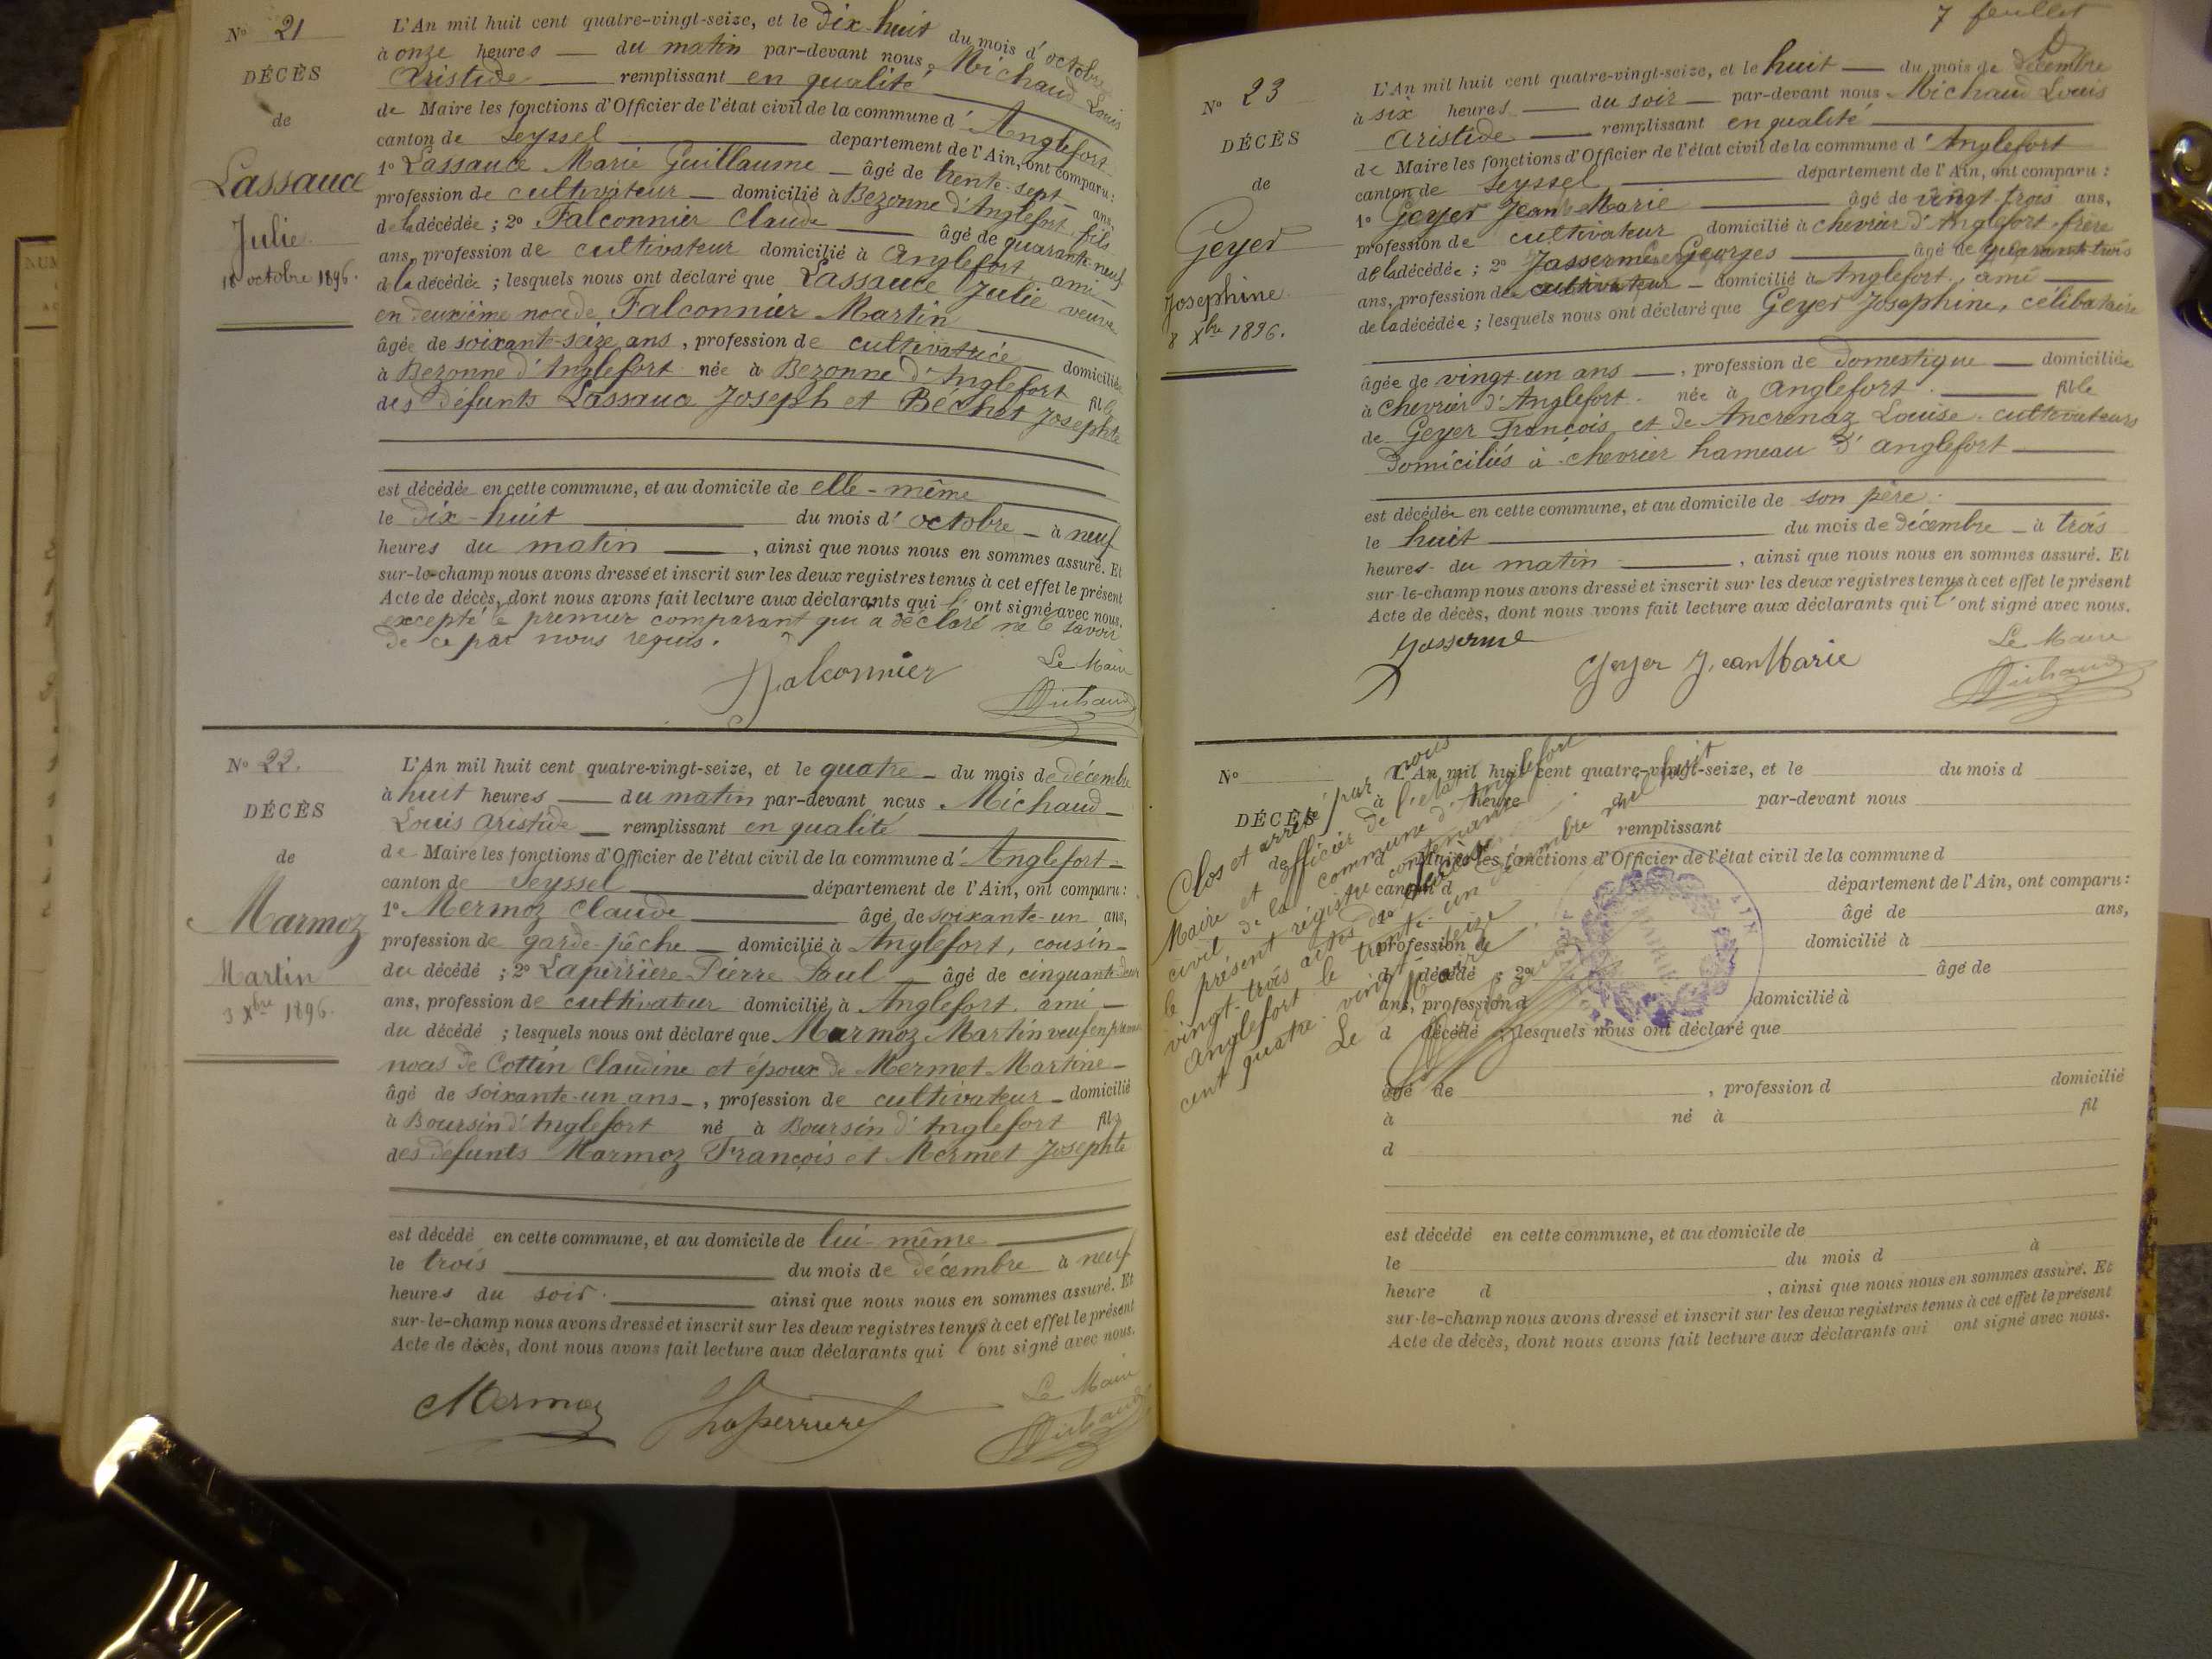 No 21
DÉCÈS
de
Lassauce
Julie
18 octobre 1896.
L'An mil huit cent quatre-vingt-seize, et le dix-huit du mois d'octobre
à onze heures — du matin par-devant nous Michaud Louis
Aristide — remplissant en qualité
de Maire les fonctions d'Officier de l'état civil de la commune d'Anglefort
canton de Seyssel département de l'Ain, ont comparu:
1º Lassauce Marie Guillaume — âgé de trente-sept ans,
profession de cultivateur — domicilié à Bezonne d'Anglefort, fils
de la décédée ; 2º Falconnier Claude — âgé de quarante-neuf
ans, profession de cultivateur domicilié à Anglefort, ami
d la décédée ; lesquels nous ont déclaré que Lassauce Julie veuve
en deuxième noce de Falconnier Martin
âgée de soixante-seize ans, profession de cultivatrice domiciliée
à Bezonne d'Anglefort née à Bezonne d'Anglefort fille
des défunts Lassauce Joseph et Béchet Josephte
est décédée en cette commune, et au domicile de elle-même
le dix-huit du mois d'octobre — à neuf
heures du matin — , ainsi que nous nous en sommes assuré. Et
sur-le-champ nous avons dressé et inscrit sur les deux registres tenus à cet effet le présent
Acte de décès, dont nous avons fait lecture aux déclarants qui l'ont signé avec nous.
excepté le premier comparant qui a déclaré ne le savoir
de ce par nous requis.
Falconnier
Le Maire
Michaud
No 22.
DÉCÈS
de
Marmoz
Martin
3 Xbre 1896.
L'An mil huit cent quatre-vingt-seize, et le quatre — du mois de décembre
à huit heures — du matin par-devant nous Michaud
Louis Aristide — remplissant en qualité
de Maire les fonctions d'Officier de l'état civil de la commune d'Anglefort
canton de Seyssel département de l'Ain, ont comparu:
1º Mermoz Claude âgé de soixante-un ans,
profession de garde-pêche — domicilié à Anglefort, cousin
du décédé ; 2º Laperrière Pierre Paul — âgé de cinquante-deux
ans, profession de cultivateur domicilié à Anglefort, ami —
du décédé ; lesquels nous ont déclaré que Marmoz Martin veuf en
noces de Cottin Claudine et époux de Mermet Martine
âgé de soixante-un ans , profession de cultivateur — domicilié
à Boursin d'Anglefort né à Boursin d'Anglefort fils
des défunts Marmoz François et Mermet Josephte
est décédé en cette commune, et au domicile de lui-même
le trois du mois de décembre à neuf
heures du soir. ainsi que nous nous en sommes assuré. Et
sur-le-champ nous avons dressé et inscrit sur les deux registres tenus à cet effet le présent
Acte de décès, dont nous avons fait lecture aux déclarants qui l'ont signé avec nous.
Mermoz
Laperriere
Le Maire
Michaud
7 feuillet
No 23
DÉCÈS
de
Geyer
Josephine
8 Xbre 1896.
L'An mil huit cent quatre-vingt-seize, et le huit — du mois de décembre
à six heures — du soir — par-devant nous Michaud Louis
Aristide — remplissant en qualité
de Maire les fonctions d'Officier de l'état civil de la commune d'Anglefort
canton de Seyssel département de l'Ain, ont comparu :
1º Geyer Jean Marie âgé de vingt-trois ans,
profession de cultivateur domicilié à chevrier d'Anglefort, frère
de la décédée ; 2º Jasserme Georges âgé de quarante-trois
ans, profession de cultivateur — domicilié à Anglefort, ami
de la décédée ; lesquels nous ont déclaré que Geyer Josephine, célibataire
âgée de vingt-un ans —, profession de domestique — domiciliée
à chevrier d'Anglefort. née à Anglefort. fille
de Geyer François et de Ancrenaz Louise. cultivateurs
domiciliés à chevrier hameau d'Anglefort
est décédée en cette commune, et au domicile de son père.
le huit du mois de décembre — à trois
heures du matin , ainsi que nous nous en sommes assuré. Et
sur-le-champ nous avons dressé et inscrit sur les deux registres tenus à cet effet le présent
Acte de décès, dont nous avons fait lecture aux déclarants qui l'ont signé avec nous.
Jasserme
Geyer Jean Marie
Le Maire
Michaud
No
DÉCÈS
Clos et arrêté par nous
Maire et officier de l'état
civil de la commune d'Anglefort
le présent régistre contenant
vingt-trois actes de décès
Anglefort le trente-un décembre mil huit
cent quatre-vingt-seize
Le Maire
L'An mil huit cent quatre-vingt-seize, et le du mois d
à heure d par-devant nous
remplissant
d Maire les fonctions d'Officier de l'état civil de la commune d
canton d département de l'Ain, ont comparu:
1º âgé de ans,
profession de domicilié à
d décédé ; 2º âgé de
ans, profession d domicilié à
d décédé ; lesquels nous ont déclaré que
MAIRIE
AIN
âgé de , profession d domicilié
à né à fil
d
est décédé en cette commune, et au domicile de
le du mois d à
heure d , ainsi que nous nous en sommes assuré. Et
sur-le-champ nous avons dressé et inscrit sur les deux registres tenus à cet effet le présent
Acte de décès, dont nous avons fait lecture aux déclarants qui ont signé avec nous.